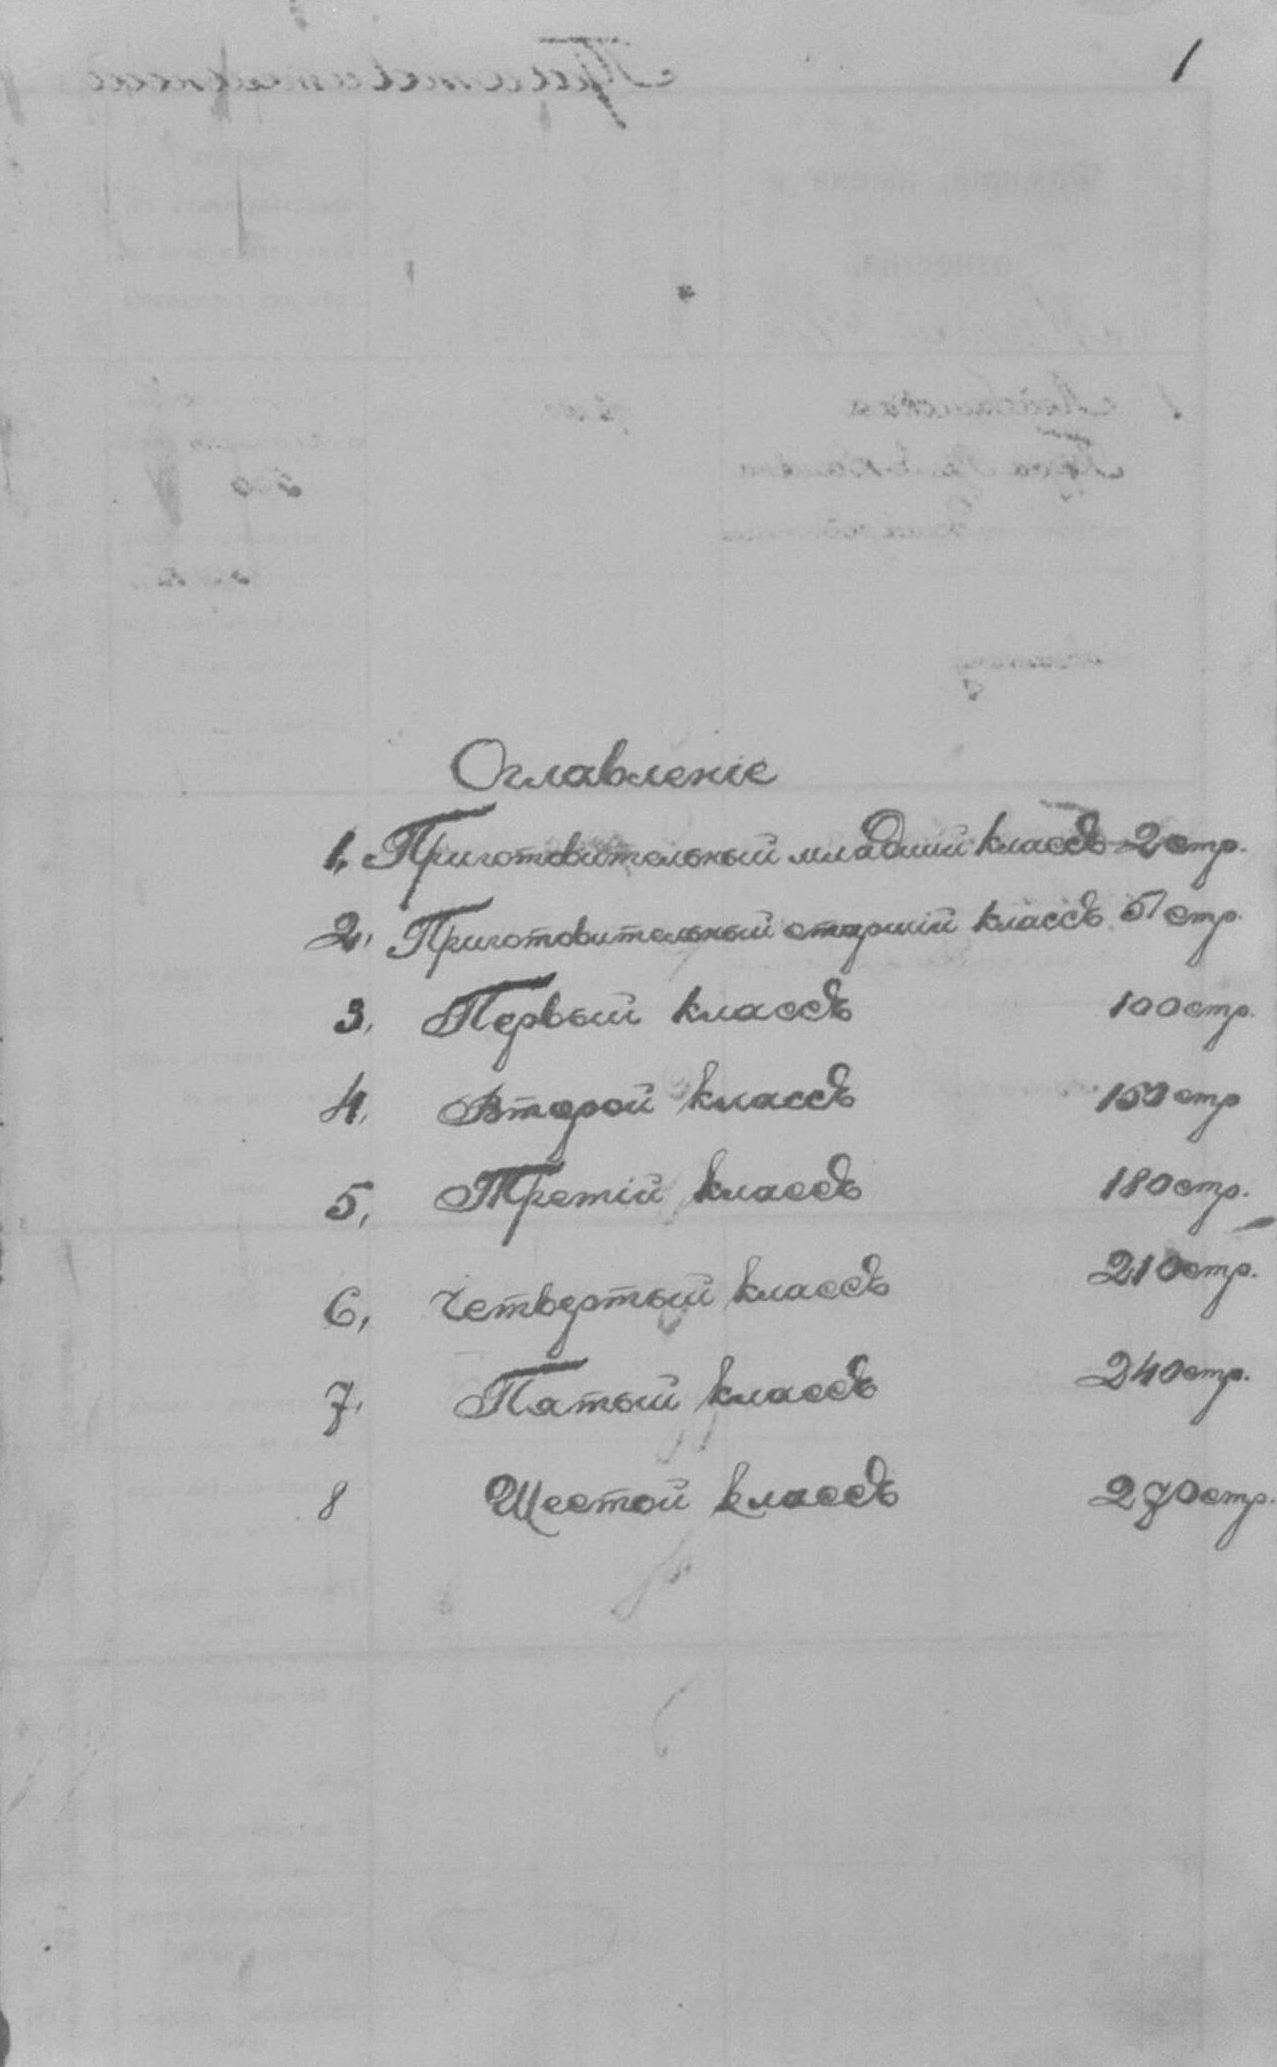 1
Оглавленіе
1, Приготовительный младшій классъ 2 стр.
2, Приготовительный старшій классъ 51 стр.
3, Первый классъ 100 стр.
4, Второй классъ 150 стр
5, Третій классъ 180 стр.
6, Четвертый классъ 210 стр.
7, Пятый классъ 240 стр.
8 Шестой классъ 270 стр.